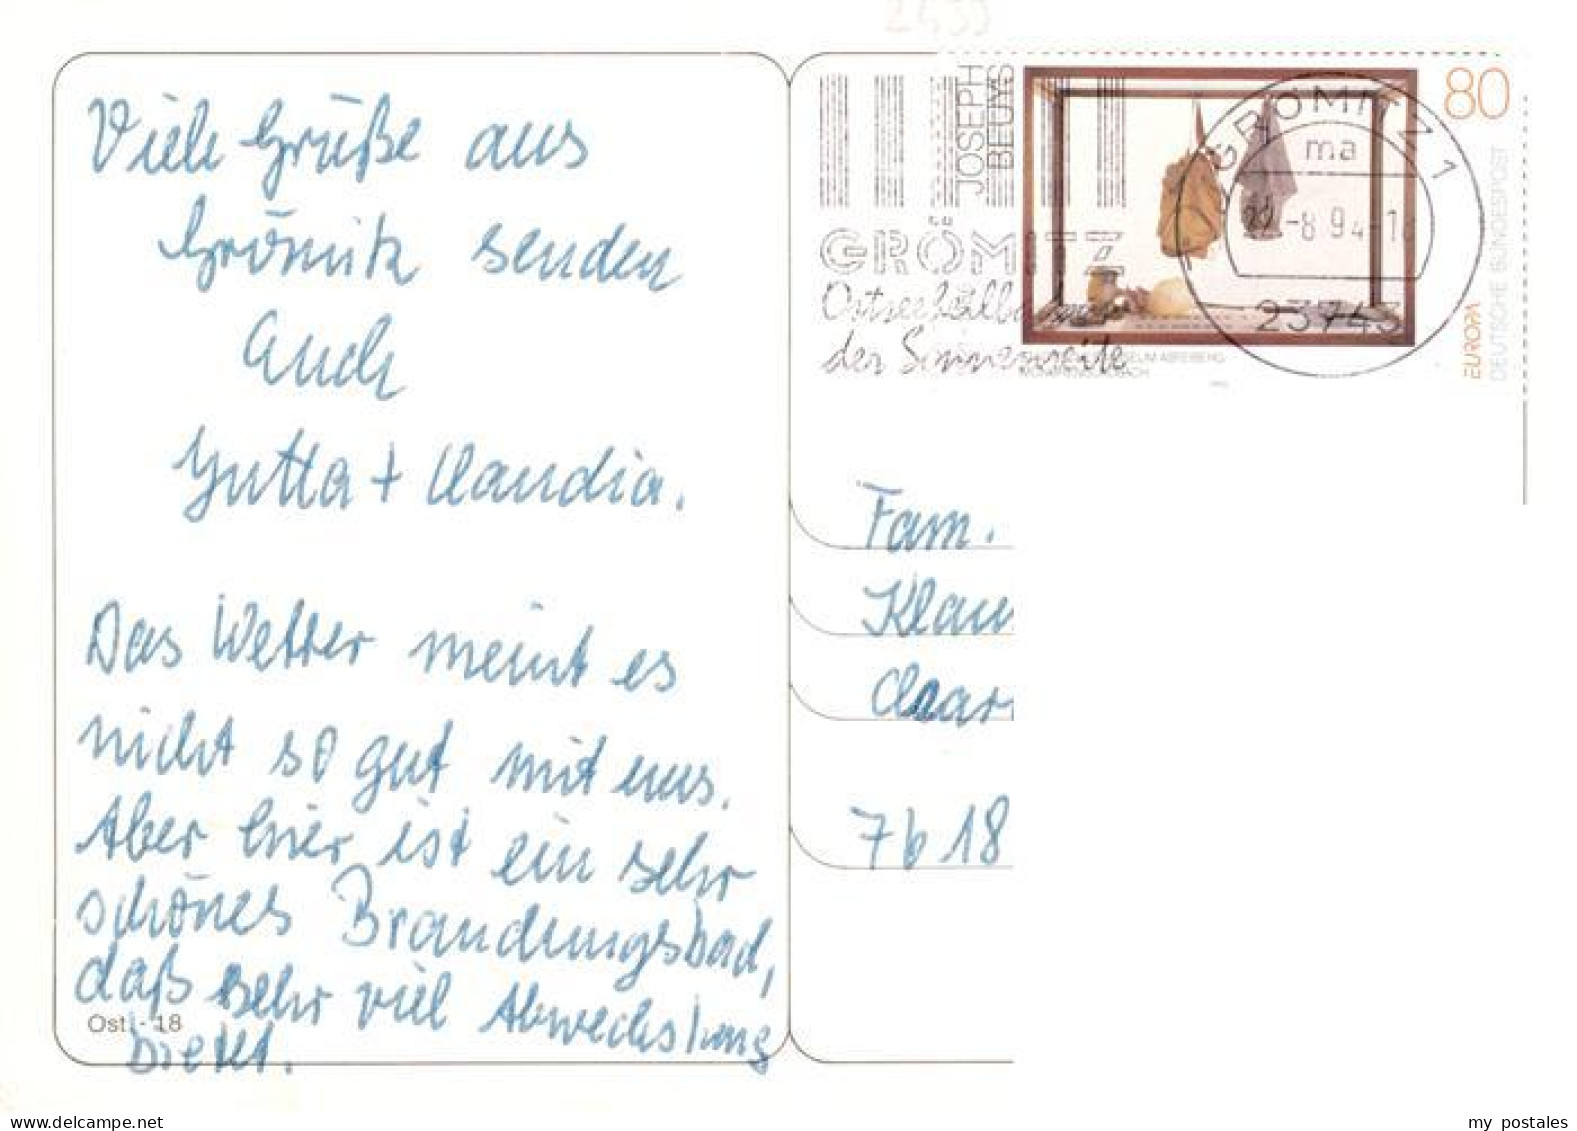 Viele Grüße aus
Grömitz senden
Euch
Jutta + Claudia.
Das Wetter meint es
nicht so gut mit uns.
Aber hier ist ein sehr
schönes Brandungsbad,
daß sehr viel Abwechslung
bietet.
Ost - 18
JOSEPH
BEUYS
80
GRÖMITZ 1
ma
22.-8.94-1
23743
GRÖMITZ
Ostseeheilbad
der Sonnenseite
EUROPA
DEUTSCHE BUNDESPOST
Fam.
Klau
7618
my postales